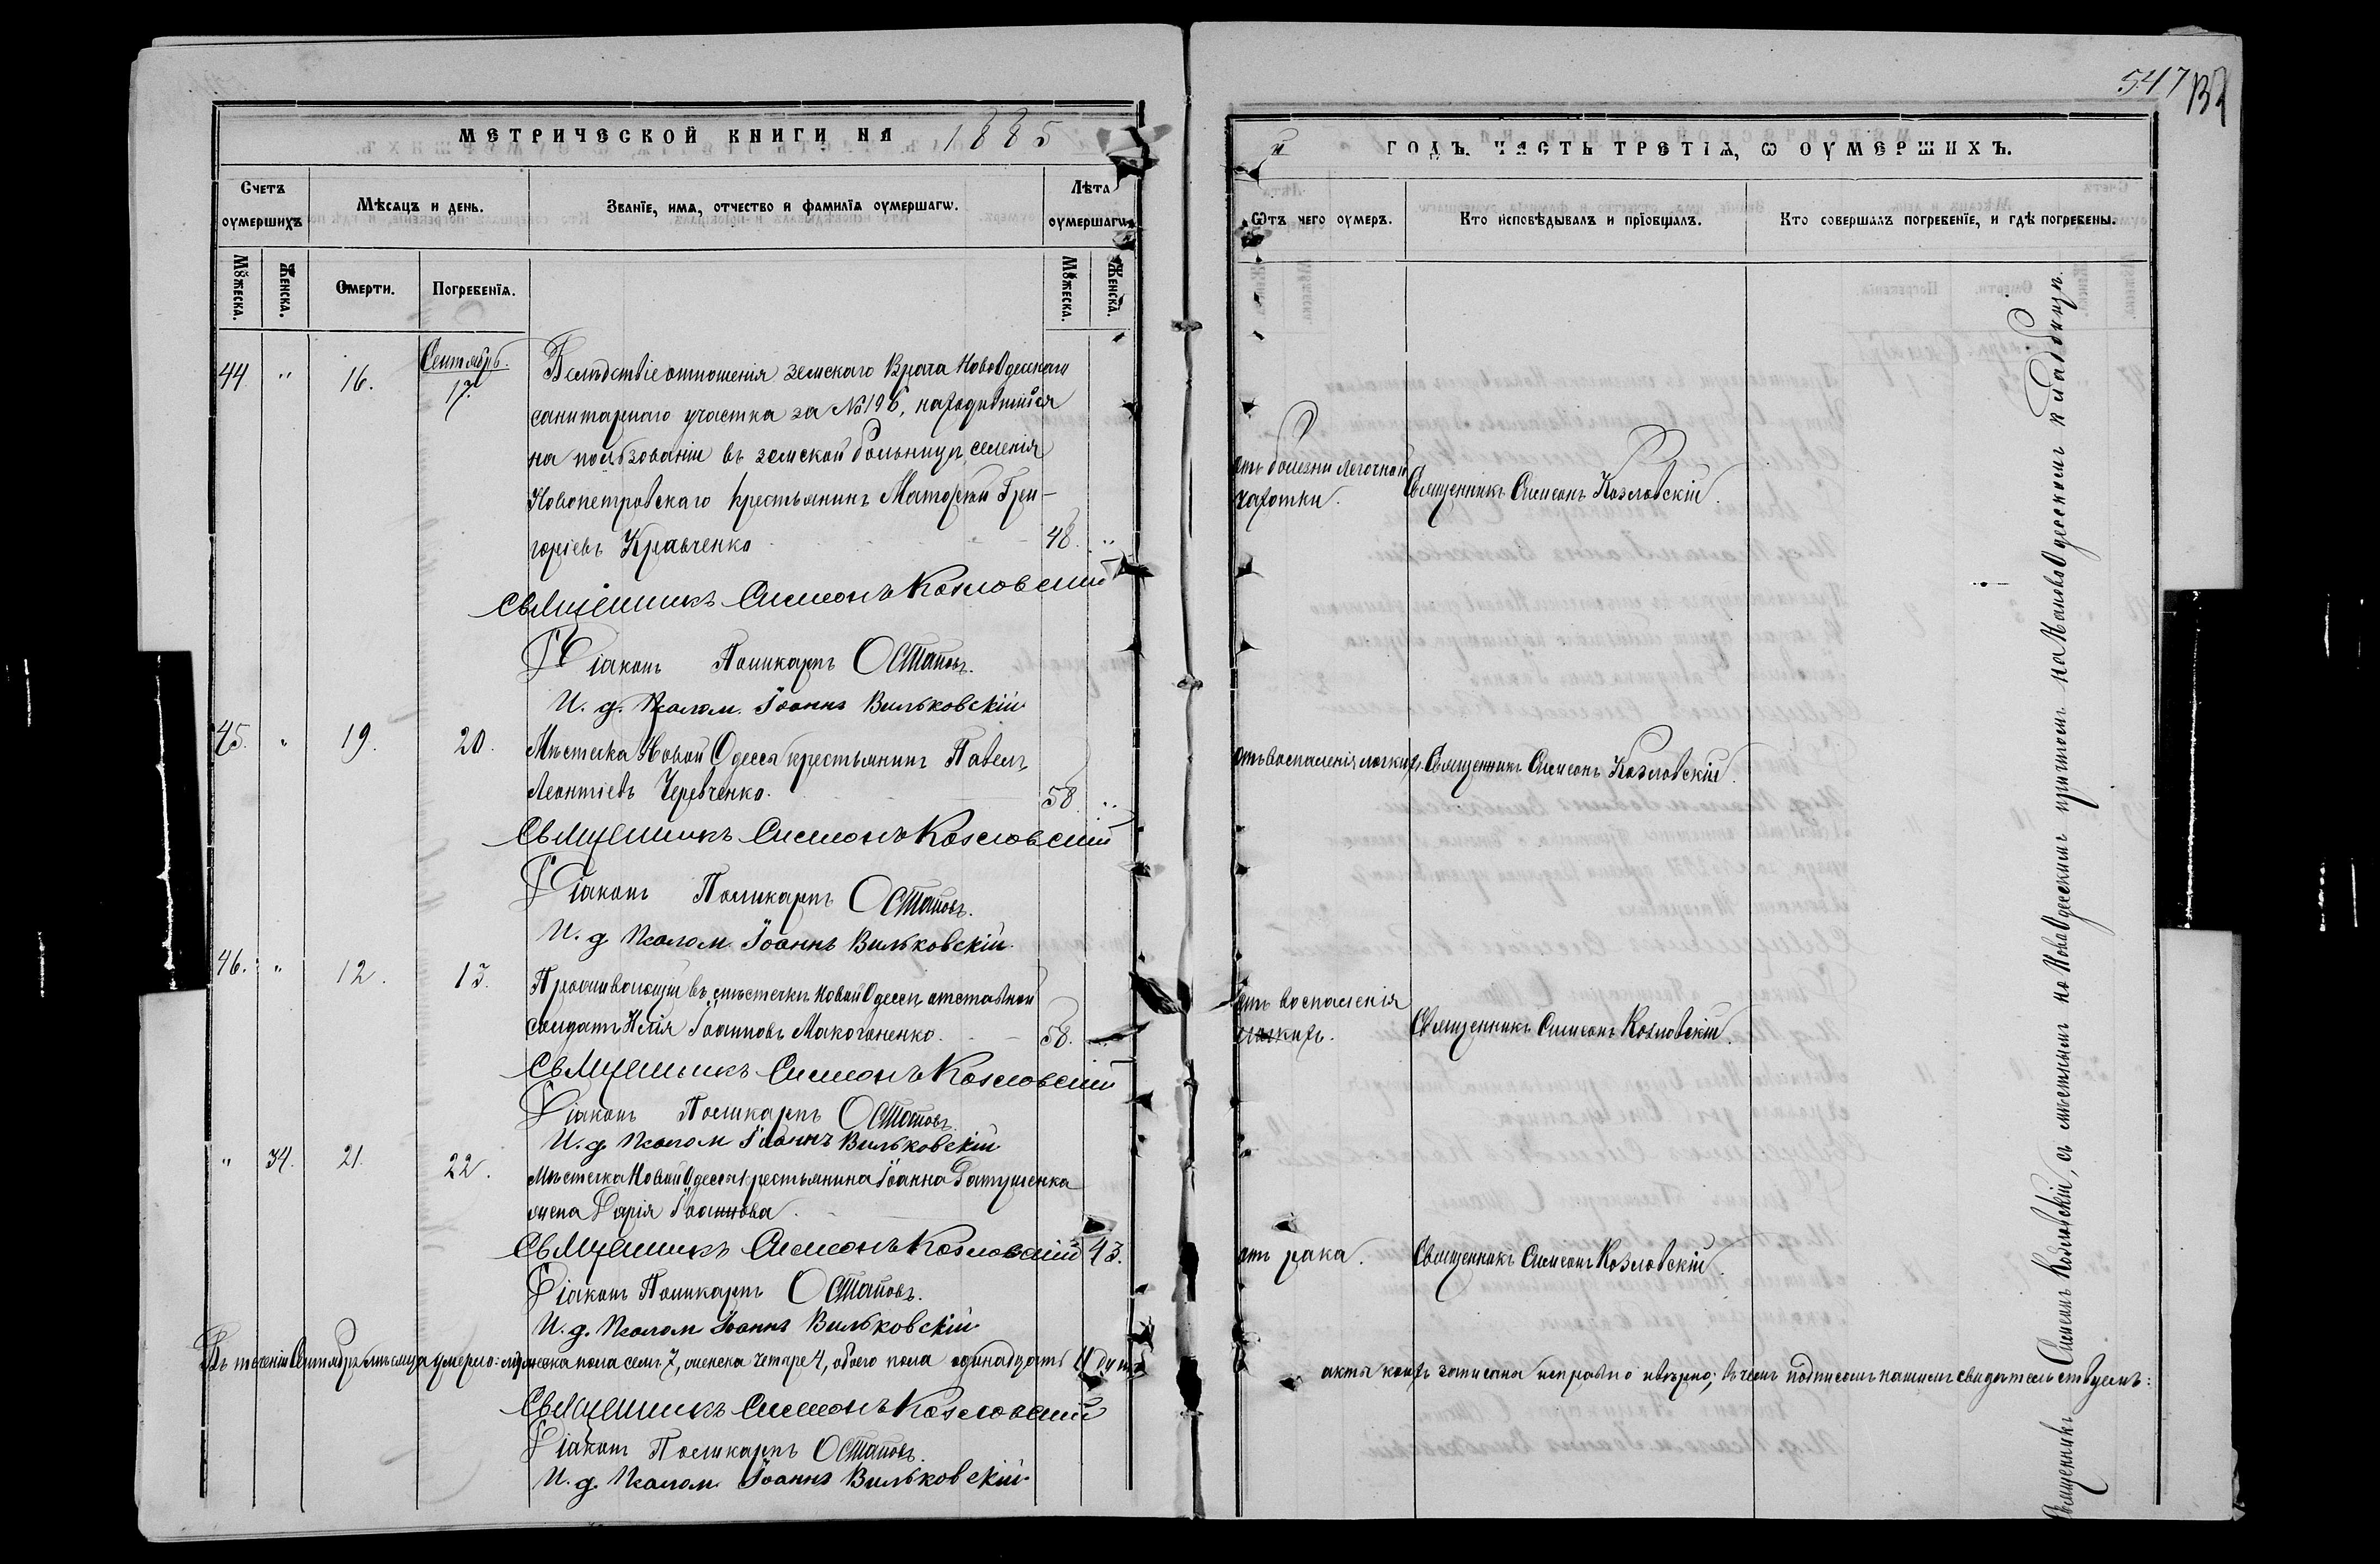 547
МЕТРИЧЕСКОЙ КНИГИ НА 1885
Счетъ оумершихъ
Мѣсяцъ и день.
Званїе, имя, отчество и фамилїя оумершагѡ.
Лѣта оумершагѡ
Мѫжеска.
Женска.
Смерти.
Погребенїя.
Мѫжеска.
Женска.
Сентябрь.
44 " 16. 17. Вслѣдствіе отношенія земскаго Врача НовоОдесскаго
санитарнаго участка за №196, находившійся
на пользованіи въ земской больницѣ, селенія
Новопетровскаго крестьянинъ Григ-
горіевъ Кравченко 48. "
Священникъ Симеонъ Козловскій
Діаконъ Поликарпъ Остаповъ.
И. д. Псалом. Іоаннъ Вильковскій
45. " 19. 20. Мѣстечка Новой Одессы крестьянинъ Павелъ
Леонтіевъ Черевченко. 58. "
Священникъ Симеонъ Козловскій
Діаконъ Поликарпъ Остаповъ.
И. д. Псалом. Іоаннъ Вильковскій
46. " 12. 13. Проживающій въ мѣстечкѣ Новой Одессѣ отставной
солдатъ Илія Іоанновъ Макогоненко. 58. "
Священникъ Симеонъ Козловскій
Діаконъ Поликарпъ Остаповъ.
И. д. Псалом Іоаннъ Вильковскій
" 34. 21. 22. Мѣстечка Новой Одессы крестьянина Іоанна
жена Дарія Іоаннова
Священникъ Симеонъ Козловскій 43.
Діаконъ Поликарпъ Остаповъ.
И. д. Псалом Іоаннъ Вильковскій
Въ теченіи Сентября мѣсяца умерло: мужеска пола семъ 7, женска четыре 4, обоего пола одинадцать 11 душъ
Священникъ Симеонъ Козловскій
Діаконъ Поликарпъ Остаповъ.
И. д. Псалом. Іоаннъ Вильковскій
й ГОДЪ. ЧАСТЬ ТРЕТІЯ, Ѡ ОУМЕРШИХЪ.
Ѿтъ чего оумеръ.
Кто исповѣдывалъ и прїобщалъ.
Кто совершалъ погребенїе, и гдѣ погребены.
отъ болезни легочной
чахотки. Священникъ Симеонъ Козловскій.
отъ воспаленія легкихъ. Священникъ Симеонъ Козловскій.
отъ воспаленія
легкихъ. Священникъ Симеонъ Козловскій.
отъ рака. Священникъ Симеонъ Козловскій.
Священникъ Симеонъ Козловскій, съ мѣстнымъ НовоОдесскимъ причтомъ на НовоОдесскомъ кладбищѣ.
акты коихъ записаны исправно и вѣрно; въ чемъ подписомъ нашимъ свидѣтельствуемъ: